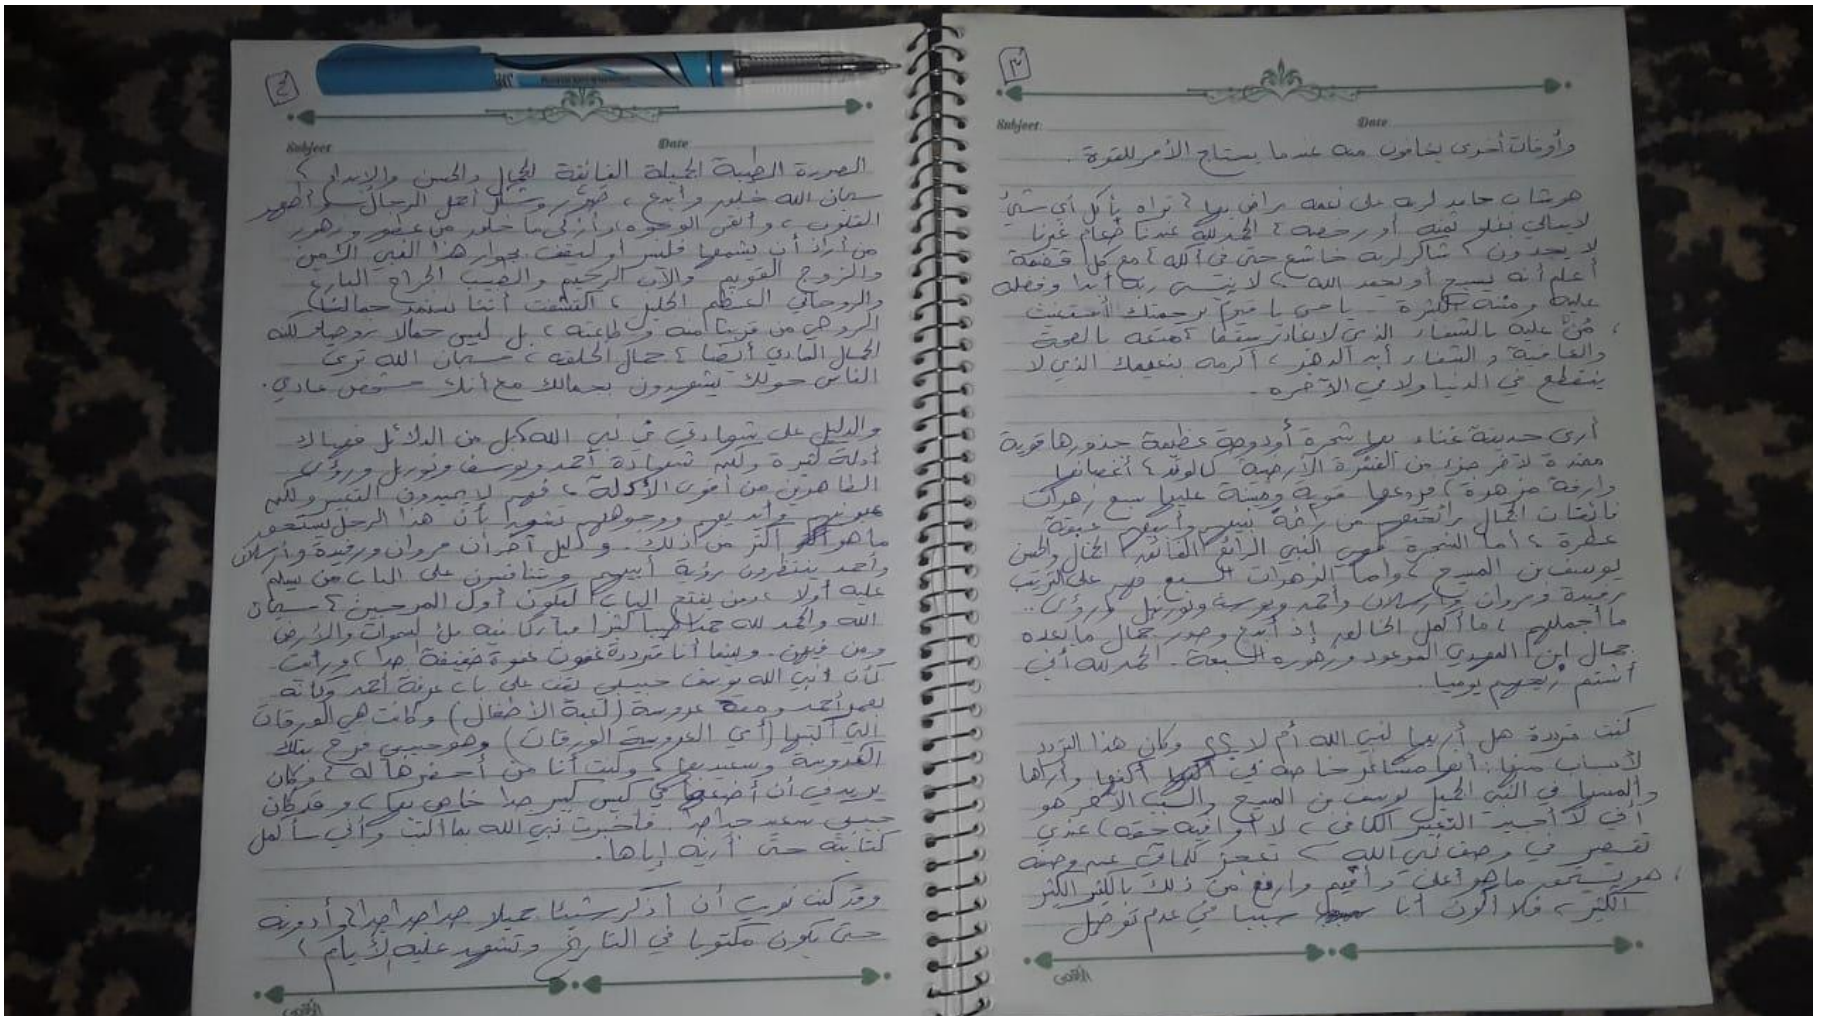 ٣
Subject:
Date
وأوقات أخرى يخافون منه عندما يحتاج الأمر للقوة.
هو شاب حامد لربه على نعمه راض بها، تراه يأكل أي شيء
لا يبالي بغلو ثمنه أو رخصه، الحمد لله عندنا طعام غيرنا
لا يجدون، شاكر لربه خاشع حتى في أكله، مع كل قضمة
أعلم أنه يسبح أو يحمد الله، لا ينسى ربه أبدا وفضله
عليه ومننه الكثيرة.. يا حي يا قيوم برحمتك أستغيث
، مُنّ عليه بالشفاء الذي لا يغادر سقما، متعه بالصحة
والعافية والشفاء أبد الدهر، أكرمه بنعيمك الذي لا
ينقطع في الدنيا ولا في الآخره.
أرى حديقة غناء بها شجرة أو دوحة عظيمة جذورها قوية
ممتدة لآخر جزء من القشرة الأرضية كالوتد، أغصانها
وارفة مزهرة، فروعها قوية ومتينة عليها سبع زهرات
فائقات الجمال رائحتهم من رائحة نبيهم وأبيهم عبقة
عطرة، أما الشجرة فهي النبي الرائع الفائق الجمال والحسن
يوسف بن المسيح، وأما الزهرات السبع فهم على الترتيب
رفيدة ومروان وأرسلان وأحمد ويوسف ونورنيل ورؤى..
ما أجملهم، ما أكمل الخالق إذ أبدع وصور جمال ما بعده
جمال ابن المهدي الموعود وزهوره السبعة. الحمد لله أني
أشتم ريحهم يوميا.
كنت مترددة هل أريها لنبي الله أم لا؟؟ وكان هذا التردد
لأسباب منها: أنها مشاعر خاصة بي أكنها وأراها
وألمسها في النبي الجميل يوسف بن المسيح والسبب الآخر هو
أني لا أجيد التعبير الكافي، لا أوافيه حقه، عندي
تقصير في وصف نبي الله، تعجز كلماتي عن وصفه
، هو يستحق ما هو أعلى وأقيم وأرفع من ذلك بالكثير الكثير
الكثير، فلا أكون أنا سببا في عدم توصيل
الأقصى
٤
Subject
Date
الصورة الطيبة الجميلة الفائقة للجمال والحسن والإبداع،
سبحان الله خلق وأبدع، صور وشكل أجمل الرجال وأطهر
القلوب، وأنقى الوجوه، وأزكى ما خلق من عطور وزهور
من أراد أن يشمها فليسر أو ليقف بجوار هذا النبي الأمين
والزوج القويم والأب الرحيم والطبيب الجراح البار،
والروحاني العظيم الجليل، اكتشفت أننا نستمد جمالنا
الروحي من قربنا منه وطاعته، بل ليس جمالا روحيا ولكنه
الجمال المادي أيضا، جمال الخلقة، سبحان الله ترى
الناس حولك يشهدون بجمالك مع أنك شخص عادي.
والدليل على شهادتي في نبي الله كل من الدلائل فهناك
أدلة كثيرة ولكن شهادة أحمد ويوسف ونورنيل ورؤى
الطاهرين من أقوى الأدلة، فهم لا يجيدون التعبير ولكن
عيونهم وأيديهم ووجوههم تشهد بأن هذا الرجل يستحق
ما هو أكثر من ذلك.. ودليل آخر أن مروان ورفيدة وأرسلان
وأحمد ينتظرون رؤية أبيهم ويتنافسون على الباب من يسلم
عليه أولا ومن يفتح الباب ليكون أول المرحبين، سبحان
الله والحمد لله حمدا طيبا كثيرا مباركا فيه ملئ السموات والأرض
ومن فيهن.. وبينما أنا مترددة غفوت غفوة خفيفة جدا، ورأيت
كأن نبي الله يوسف حبيبي يقف على باب غرفة أحمد وكأنه
بعمر أحمد ومعه عروسة (لعبة الأطفال) وكانت هي الورقات
التي أكتبها (أي العروسة الورقات) وهو حبيبي فرح بتلك
العروسة وسعيد بها، وكنت أنا من أحضرها له، وكان
يريدني أن أضعها في كيس كبير جدا خاص بها، وقد كان
حبيبي سعيد جدا جدا. فأخبرت نبي الله بما أكتب وأني سأكمل
كتابته حتى أريه إياها.
وقد كنت نويت أن أذكر شيئا جميلا جدا جدا جدا، وأدونه
حتى يكون مكتوبا في التاريخ وتشهد عليه الأيام،
الأقصى